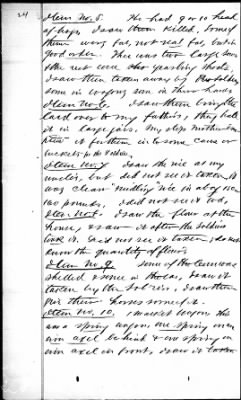 24
Item No. 5. He had 9 or 10 head
of hogs. I saw them killed, Some of
them were fat, not real fat, but in
good order. There were two large hogs
the rest were
I saw them taken away by the soldiers
some in wagons some in their hands
Item No. 6. I saw them bring the
lard over to my fathers, they had
it in large jars. My old mother
it for them in to some cans or
buckets
Item No. 7. I saw the rice at my
uncles, but did not see it taken, it
was clean nice in a bag
100 pounds. I did not see it
Item No. 8. I saw the flour at the
house, & saw it after the soldiers
took it. Did not see it taken, do not
know the quantity of flour.
Item No. 9. Some of the corn was
shelled & some in the ear, I saw it
taken by the soldiers, I saw them
give their horses some of it.
Item No. 10. 1 market wagon this
was a spring wagon one spring on
axel behind & one spring on
axel in front, I saw it taken